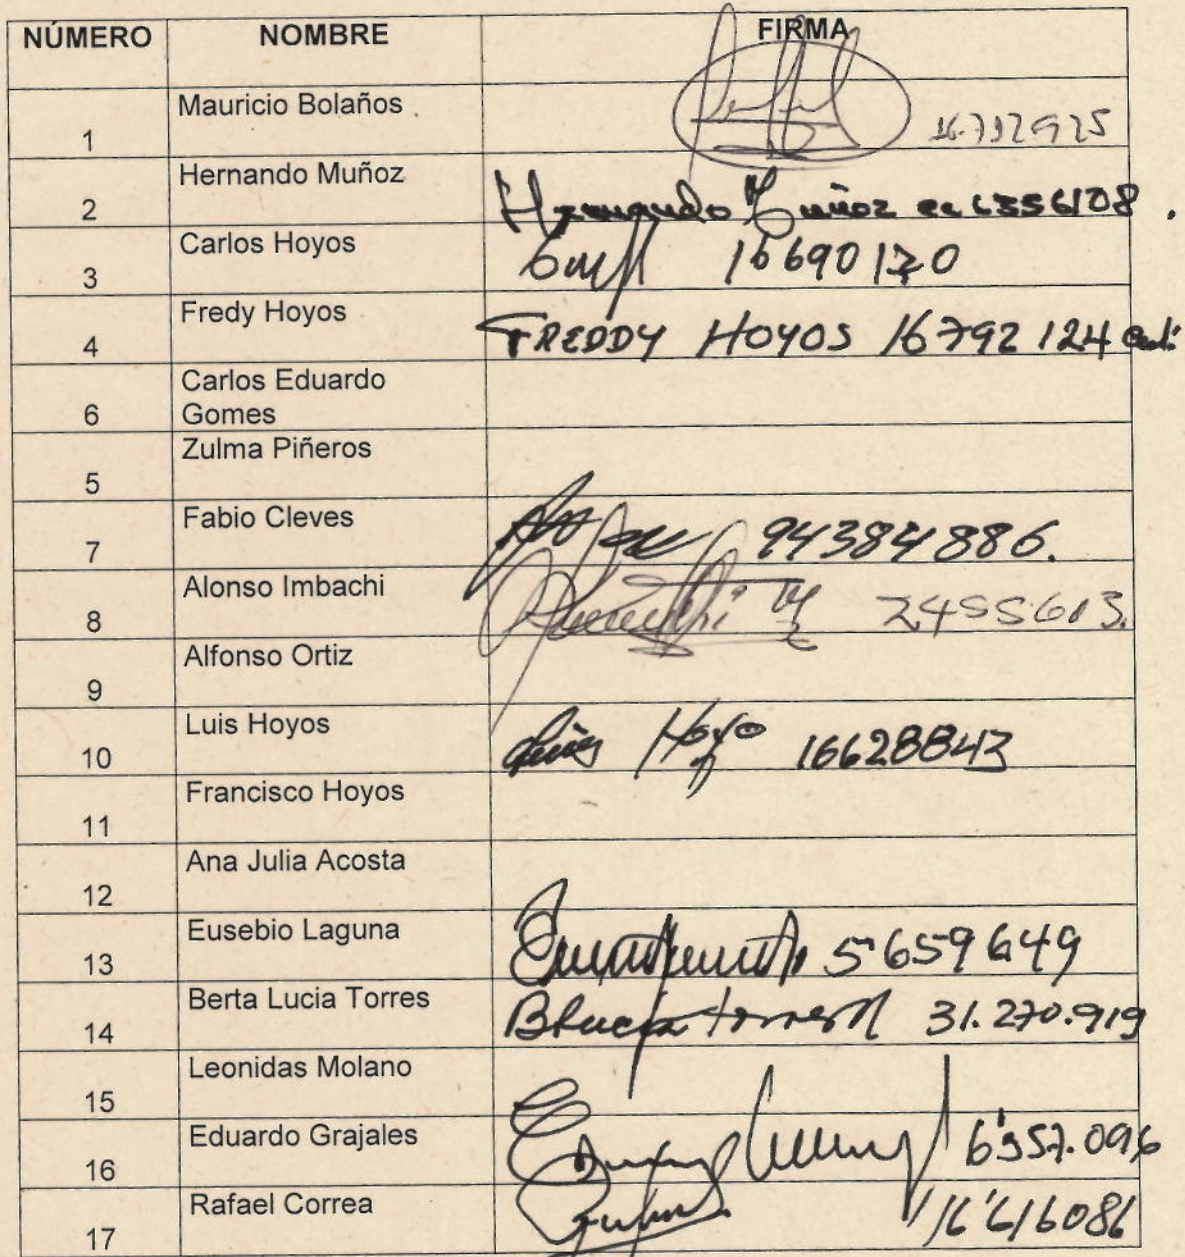 NÚMERO NOMBRE FIRMA
1 Mauricio Bolaños 16.712925
2 Hernando Muñoz Hernando Muñoz cc 6356108.
3 Carlos Hoyos 16690170
4 Fredy Hoyos FREDDY HOYOS 16792124 Cali
6 Carlos Eduardo
Gomes
5 Zulma Piñeros
7 Fabio Cleves 94384886.
8 Alonso Imbachi 2455603.
9 Alfonso Ortiz
10 Luis Hoyos Luis Hoyo 16628843
11 Francisco Hoyos
12 Ana Julia Acosta
13 Eusebio Laguna 5659649
14 Berta Lucia Torres BLucia torres 31.270.919
15 Leonidas Molano
16 Eduardo Grajales 6'357.096
17 Rafael Correa 16'616086